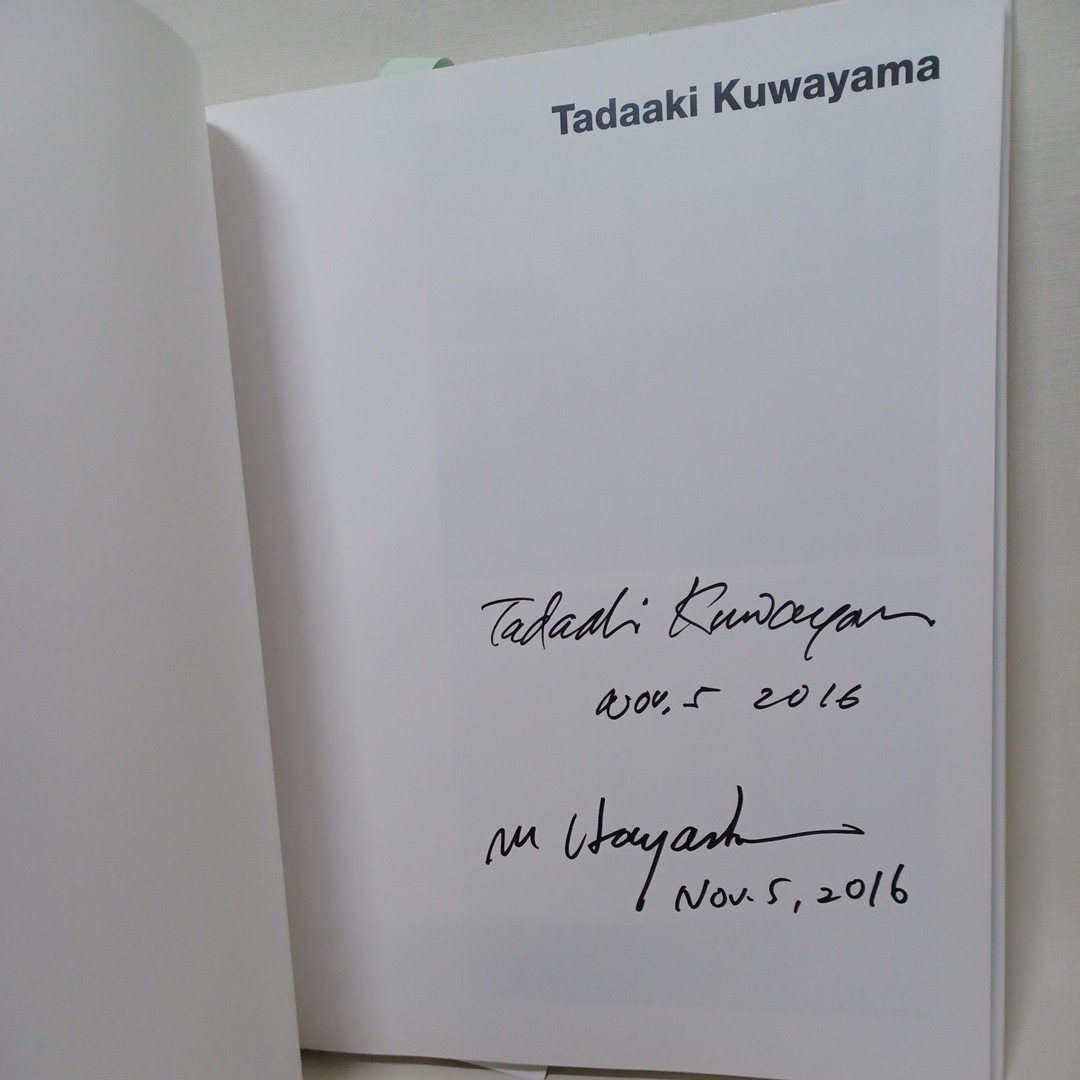 Tadaaki Kuwayama
Tadaaki Kuwayama
Nov. 5 2016
M Hayashi
Nov. 5, 2016